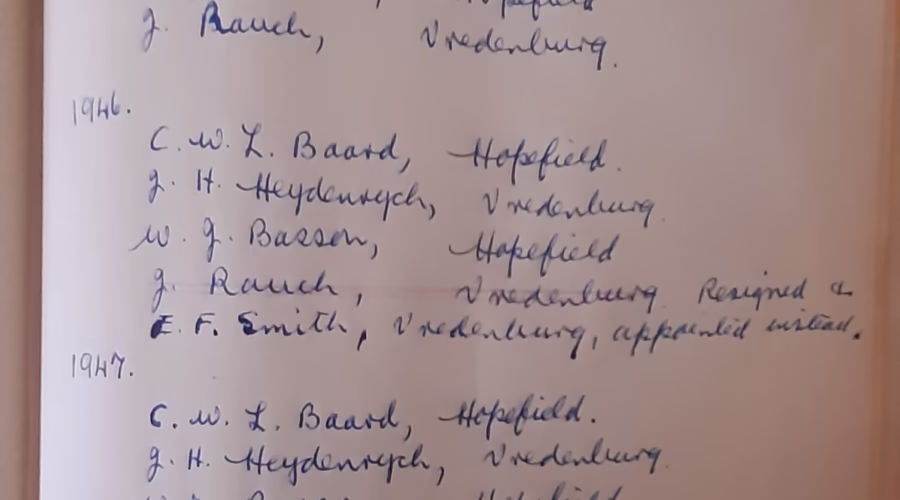 Hopefield
J. Rauch, Vredenburg.
1946.
C. W. L. Baard, Hopefield.
J. H. Heydenrych, Vredenburg.
W. J. Basson, Hopefield
J. Rauch, Vredenburg Resigned &
E. F. Smith, Vredenburg, appointed instead.
1947.
C. W. L. Baard, Hopefield.
J. H. Heydenrych, Vredenburg.